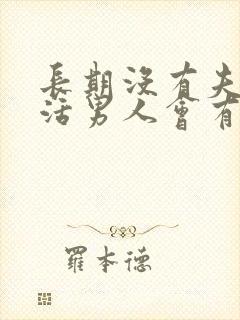 長期沒有夫
活男人會有
羅本德